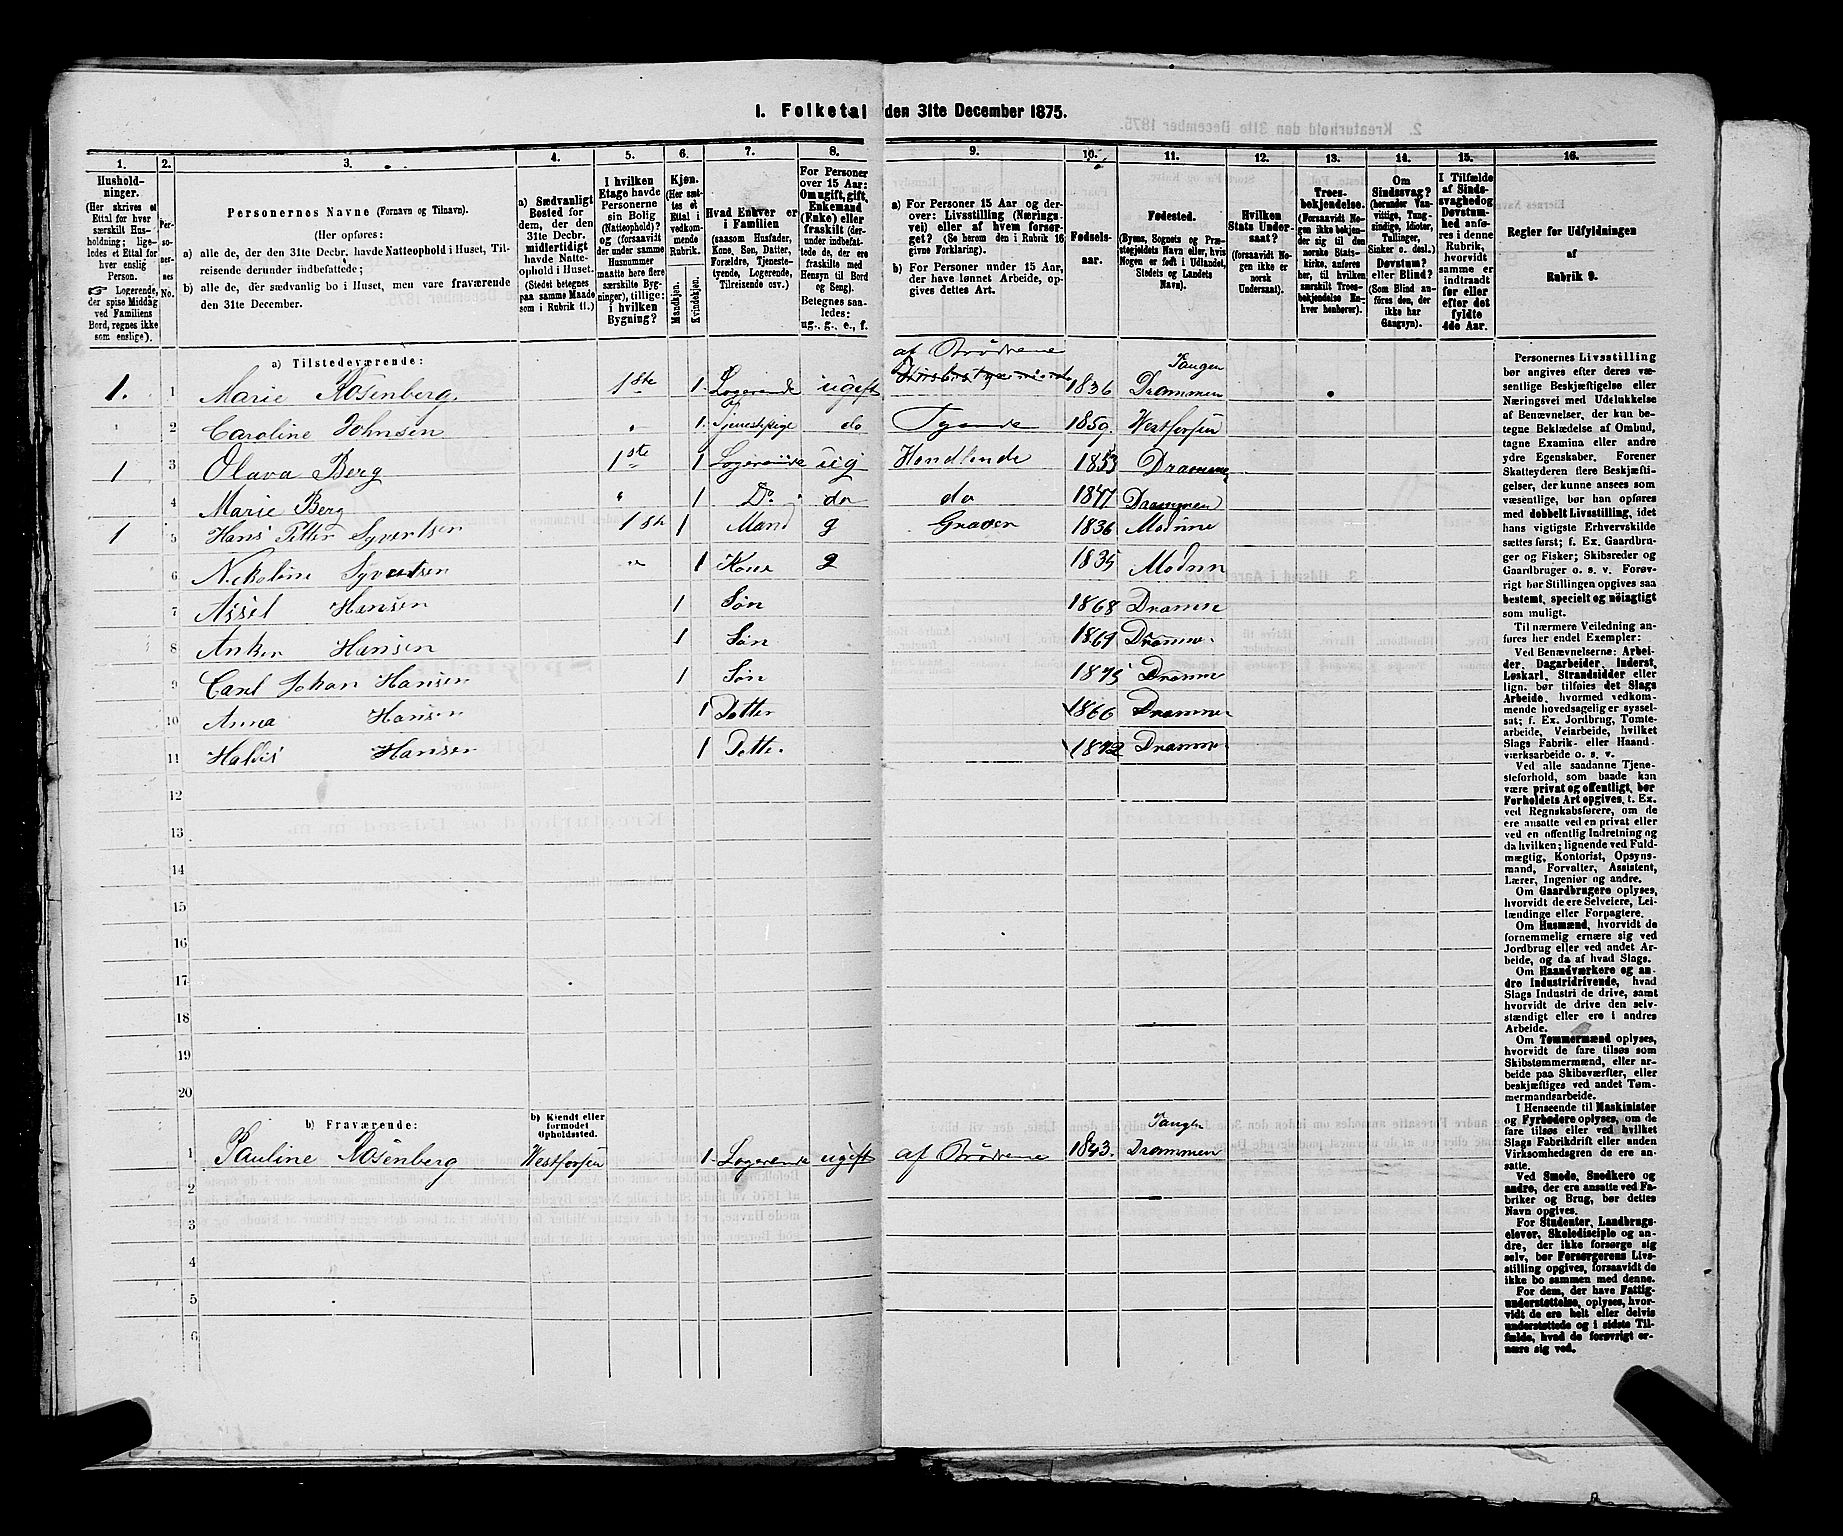 1. Folketal den 31te December 1875.
1. 2. 3. 4. 5. 6. 7. 8. 9. 10. 11. 12. 13. 14. 15. 16.
Hushold-
ninger.
(Her skrives et
Ettal for hver
særskilt Hus-
holdning; lige-
ledes et Ettal for
hver enslig
Person.
Logerende,
der spise Middag
ved Familiens
Bord, regnes ikke
som enslige).
Per-
so-
ner-
nes
No.
Personernes Navne (Fornavn og Tilnavn).
(Her opføres:
a) alle de, der den 31te Decbr. havde Natteophold i Huset, Til-
reisende derunder indbefattede;
b) alle de, der sædvanlig bo i Huset, men vare fraværende
den 31te December.
a) Sædvanligt
Bosted for
dem, der den
31te Decbr.
midlertidigt
havde Natte-
ophold i Huset.
(Stedet betegnes
paa samme Maade
som i Rubrik 11.)
I hvilken
Etage havde
Personerne
sin Bolig
(Natteophold)?
og (forsaavidt
der under samme
Husnummer
maatte høre flere
særskilte Byg-
ninger), tillige:
i hvilken
Bygning?
Kjøn.
(Her sæt-
tes et
Ettal i
vedkom-
mende
Rubrik.
Mandkjøn.
Kvindekjøn.
Hvad Enhver er
i Familien
(saasom Husfader,
Kone, Søn, Datter,
Forældre, Tjeneste-
tyende, Logerende,
Tilreisende osv.)
For Personer
over 15 Aar:
Om ugift, gift,
Enkemand
(Enke) eller
fraskilt (der-
under indbefat-
tede de, der ere
fraskilte med
Hensyn til Bord
og Seng).
Betegnes saa-
ledes:
ug., g., e., f.
a) For Personer 15 Aar og der-
over: Livsstilling (Nærings-
vei) eller af hvem forsør-
get? (Se herom den i Rubrik 16
givne Forklaring).
b) For Personer under 15 Aar,
der have lønnet Arbeide, op-
gives dettes Art.
Fødsels-
aar.
Fødested.
(Byens, Sognets og Præ-
stegjeldets Navn eller, hvis
Nogen er født i Udlandet,
Stedets og Landets
Navn).
Hvilken
Stats Under-
saat?
(forsaavidt No-
gen ikke er
norsk
Undersaat).
Troes-
bekjendelse.
(Forsaavidt No-
gen ikke bekjen-
der sig til den
norske Stats-
kirke, anføres
her, til hvilken
særskilt Troes-
bekjendelse En-
hver henhører).
Om
Sindssvag?
(herunder Van-
vittige, Tung-
sindige, Idioter,
Tullinger,
Sinker o. desl.)
Døvstum?
eller Blind?
(Som Blind an-
føres den, der
ikke har
Gangsyn).
I Tilfælde
af Sinds-
svaghed og
Døvstum-
hed anfø-
res i denne
Rubrik,
hvorvidt
samme er
indtraadt
før eller
efter det
fyldte
4de Aar.
Regler for Udfyldningen
af
Rubrik 9.
a) Tilstedeværende:
1. 1 Marie Rosenberg. 1ste 1. Logerende ugift af Brødrene 1836 Tangen Drammen
2 Caroline Johnsen " 1. Tjenestpige do Tyende 1859. Westfossen
1 3 Olava Berg 1ste 1 Logerende ug Handlende 1853 Dramme
4 Marie Berg " 1 Do do do 1847 Drammen
1 5 Hans Petter Syvertsen 1ste 1 Mand g Graver 1836 Modum
6 Nickoline Syvertsen " 1 Kone g 1835 Modum
7 Axsel Hansen 1 Søn 1868 Dramm
8 Anker Hansen 1 Søn 1869 Dramme
9 Carl Johan Hansen 1 Søn 1875 Dramm
10 Anna Hansen 1 Dotter 1866 Dramme
11 Hansen 1 Dotte. 1872 Dramme
12
13
14
15
16
17
18
19
20
b) Fraværende:
b) Kjendt eller
formodet
Opholdssted.
1 Pauline Rosenberg Westfossen 1. Logerende ugift af Brødrene 1843. Tangen Drammen
2
3
4
5
6
Personernes Livsstilling
bør angives efter deres væ-
sentlige Beskjæftigelse eller
Næringsvei med Udelukkelse
af Benævnelser, der kun be-
tegne Beklædelse af Ombud,
tagne Examina eller andre
ydre Egenskaber. Forener
Skatteyderen flere Beskjæfti-
gelser, der kunne ansees som
væsentlige, bør han opføres
med dobbelt Livsstilling, idet
hans vigtigste Erhvervskilde
sættes først; f. Ex. Gaardbru-
ger og Fisker; Skibsreder og
Gaardbruger o. s. v. Forøv-
rigt bør Stillingen opgives saa
bestemt, specielt og nøiagtigt
som muligt.
Til nærmere Veiledning an-
føres her endel Exempler:
Ved Benævnelserne: Arbei-
der, Dagarbeider, Inderst,
Løskarl, Strandsidder eller
lign. bør tilføies det Slags
Arbeide, hvormed vedkom-
mende hovedsagelig er syssel-
sat; f. Ex. Jordbrug, Tomte-
arbeide, Veiarbeide, hvilket
Slags Fabrik- eller Haand-
værksarbeide o. s. v.
Ved alle saadanne Tjene-
steforhold, som baade kan
være privat og offentligt, bør
Forholdets Art opgives, t. Ex.
ved Regnskabsførere, om de
ere ansatte ved en privat eller
ved en offentlig Indretning og
da hvilken; lignende ved Fuld-
mægtig, Kontorist, Opsyns-
mand, Forvalter, Assistent,
Lærer, Ingeniør og andre.
Om Gaardbrugere oplyses,
hvorvidt de ere Selveiere, Lei-
lændinge eller Forpagtere.
Om Husmænd, hvorvidt de
fornemmelig ernære sig ved
Jordbrug eller ved andet Ar-
beide, og da af hvad Slags.
Om Haandværkere og an-
dre Industridrivende, hvad
Slags Industri de drive, samt
hvorvidt de drive den selv-
stændigt eller ere i andres
Arbeide.
Om Tømmermænd oplyses,
hvorvidt de fare tilsøs som
Skibstømmermænd, eller ar-
beide paa Skibsværfter, eller
beskjæftiges ved andet Tøm-
mermandsarbeide.
I Henseende til Maskinister
og Fyrbødere oplyses, om de
fare tilsøs eller ved hvilket
Slags Fabrikdrift eller anden
Virksomhedsgren de ere an-
satte.
Ved Smede, Snedkere og
andre, der ere ansatte ved Fa-
briker og Brug, bør dettes
Navn opgives.
For Studenter, Landbrugs-
elever, Skoledisciple og an-
dre, der ikke forsørge sig
selv, bør Forsørgerens Livs-
stilling opgives, forsaavidt de
ikke bo sammen med denne.
For dem, der have Fattig-
understøttelse, oplyses, hvor-
vidt de ere helt eller delvis
understøttede og i sidste Til-
fælde, hvad de forøvrigt er-
nære sig ved.